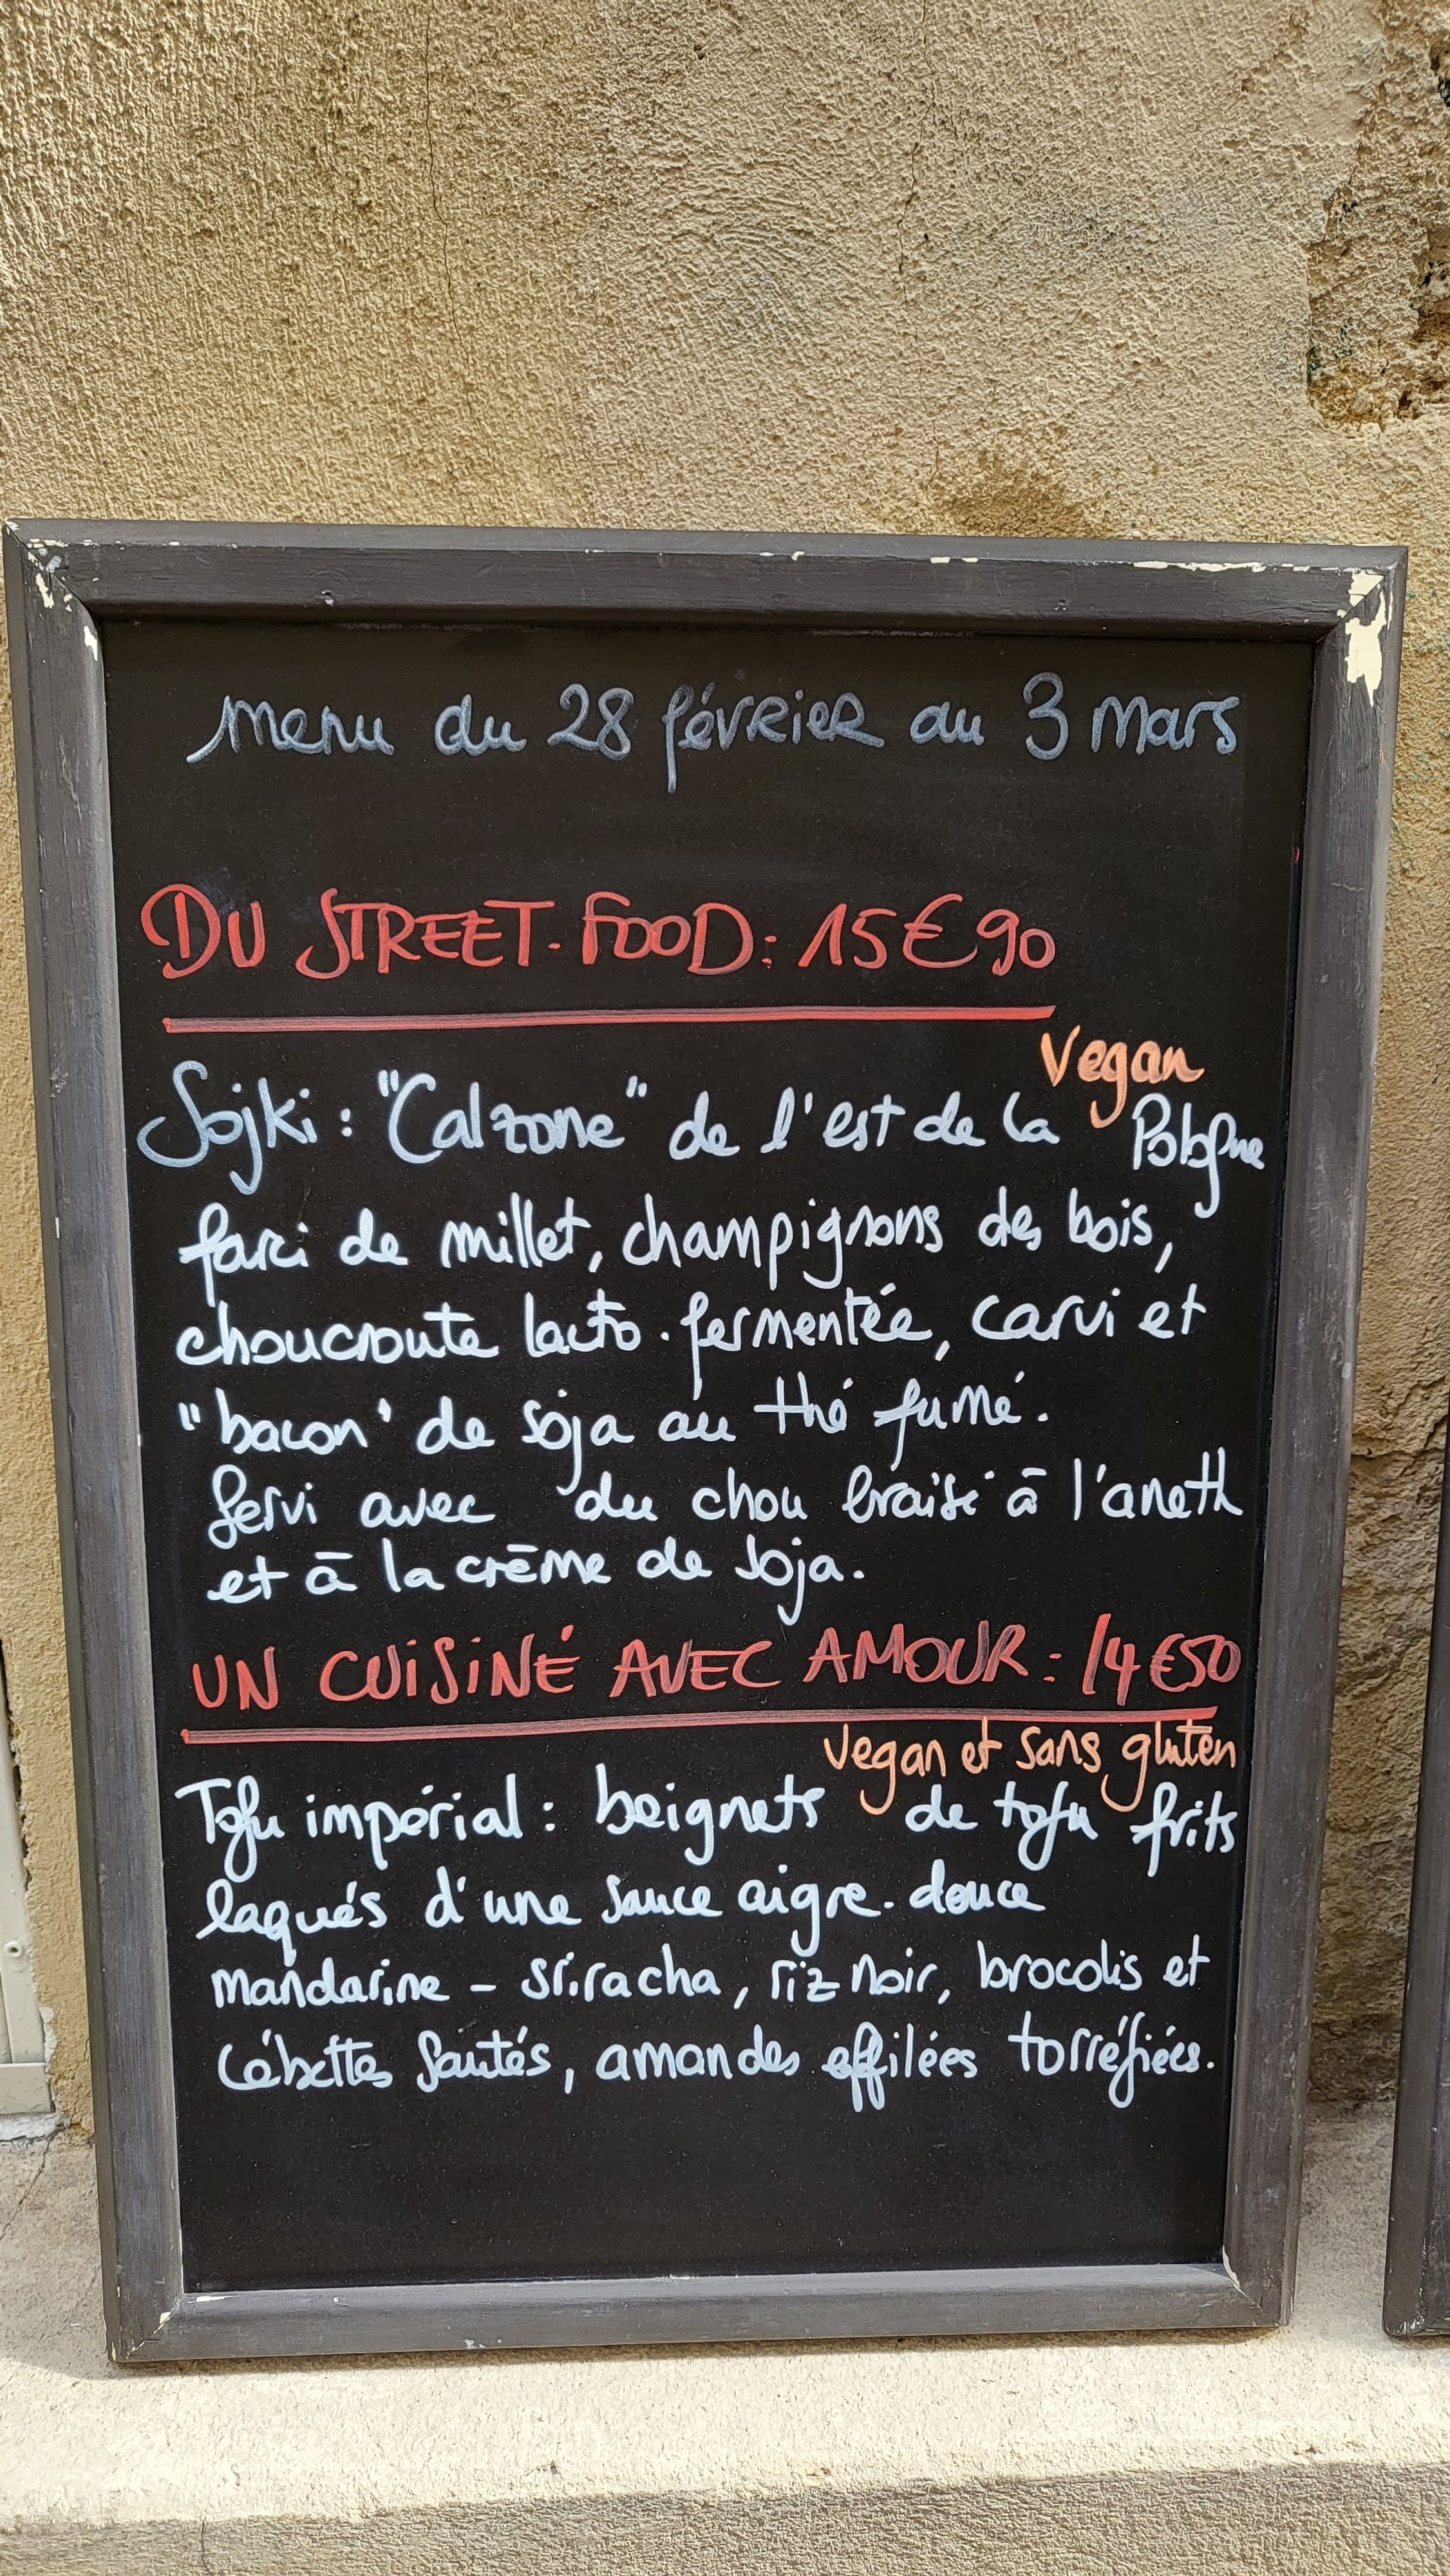 menu du 28 février au 3 mars
DU STREET-FOOD: 15€90
Vegan
Sojki : "Calzone" de l'est de la Pologne
farci de millet, champignons des bois,
choucroute lacto-fermentée, carvi et
"bacon" de soja au thé fumé.
Servi avec du chou braisé à l'aneth
et à la crème de soja.
UN CUISINÉ AVEC AMOUR: 14€50
Vegan et sans gluten
Tofu impérial : beignets de tofu frits
laqués d'une sauce aigre-douce
mandarine - sriracha, riz noir, brocolis et
cébettes sautés, amandes effilées torréfiées.